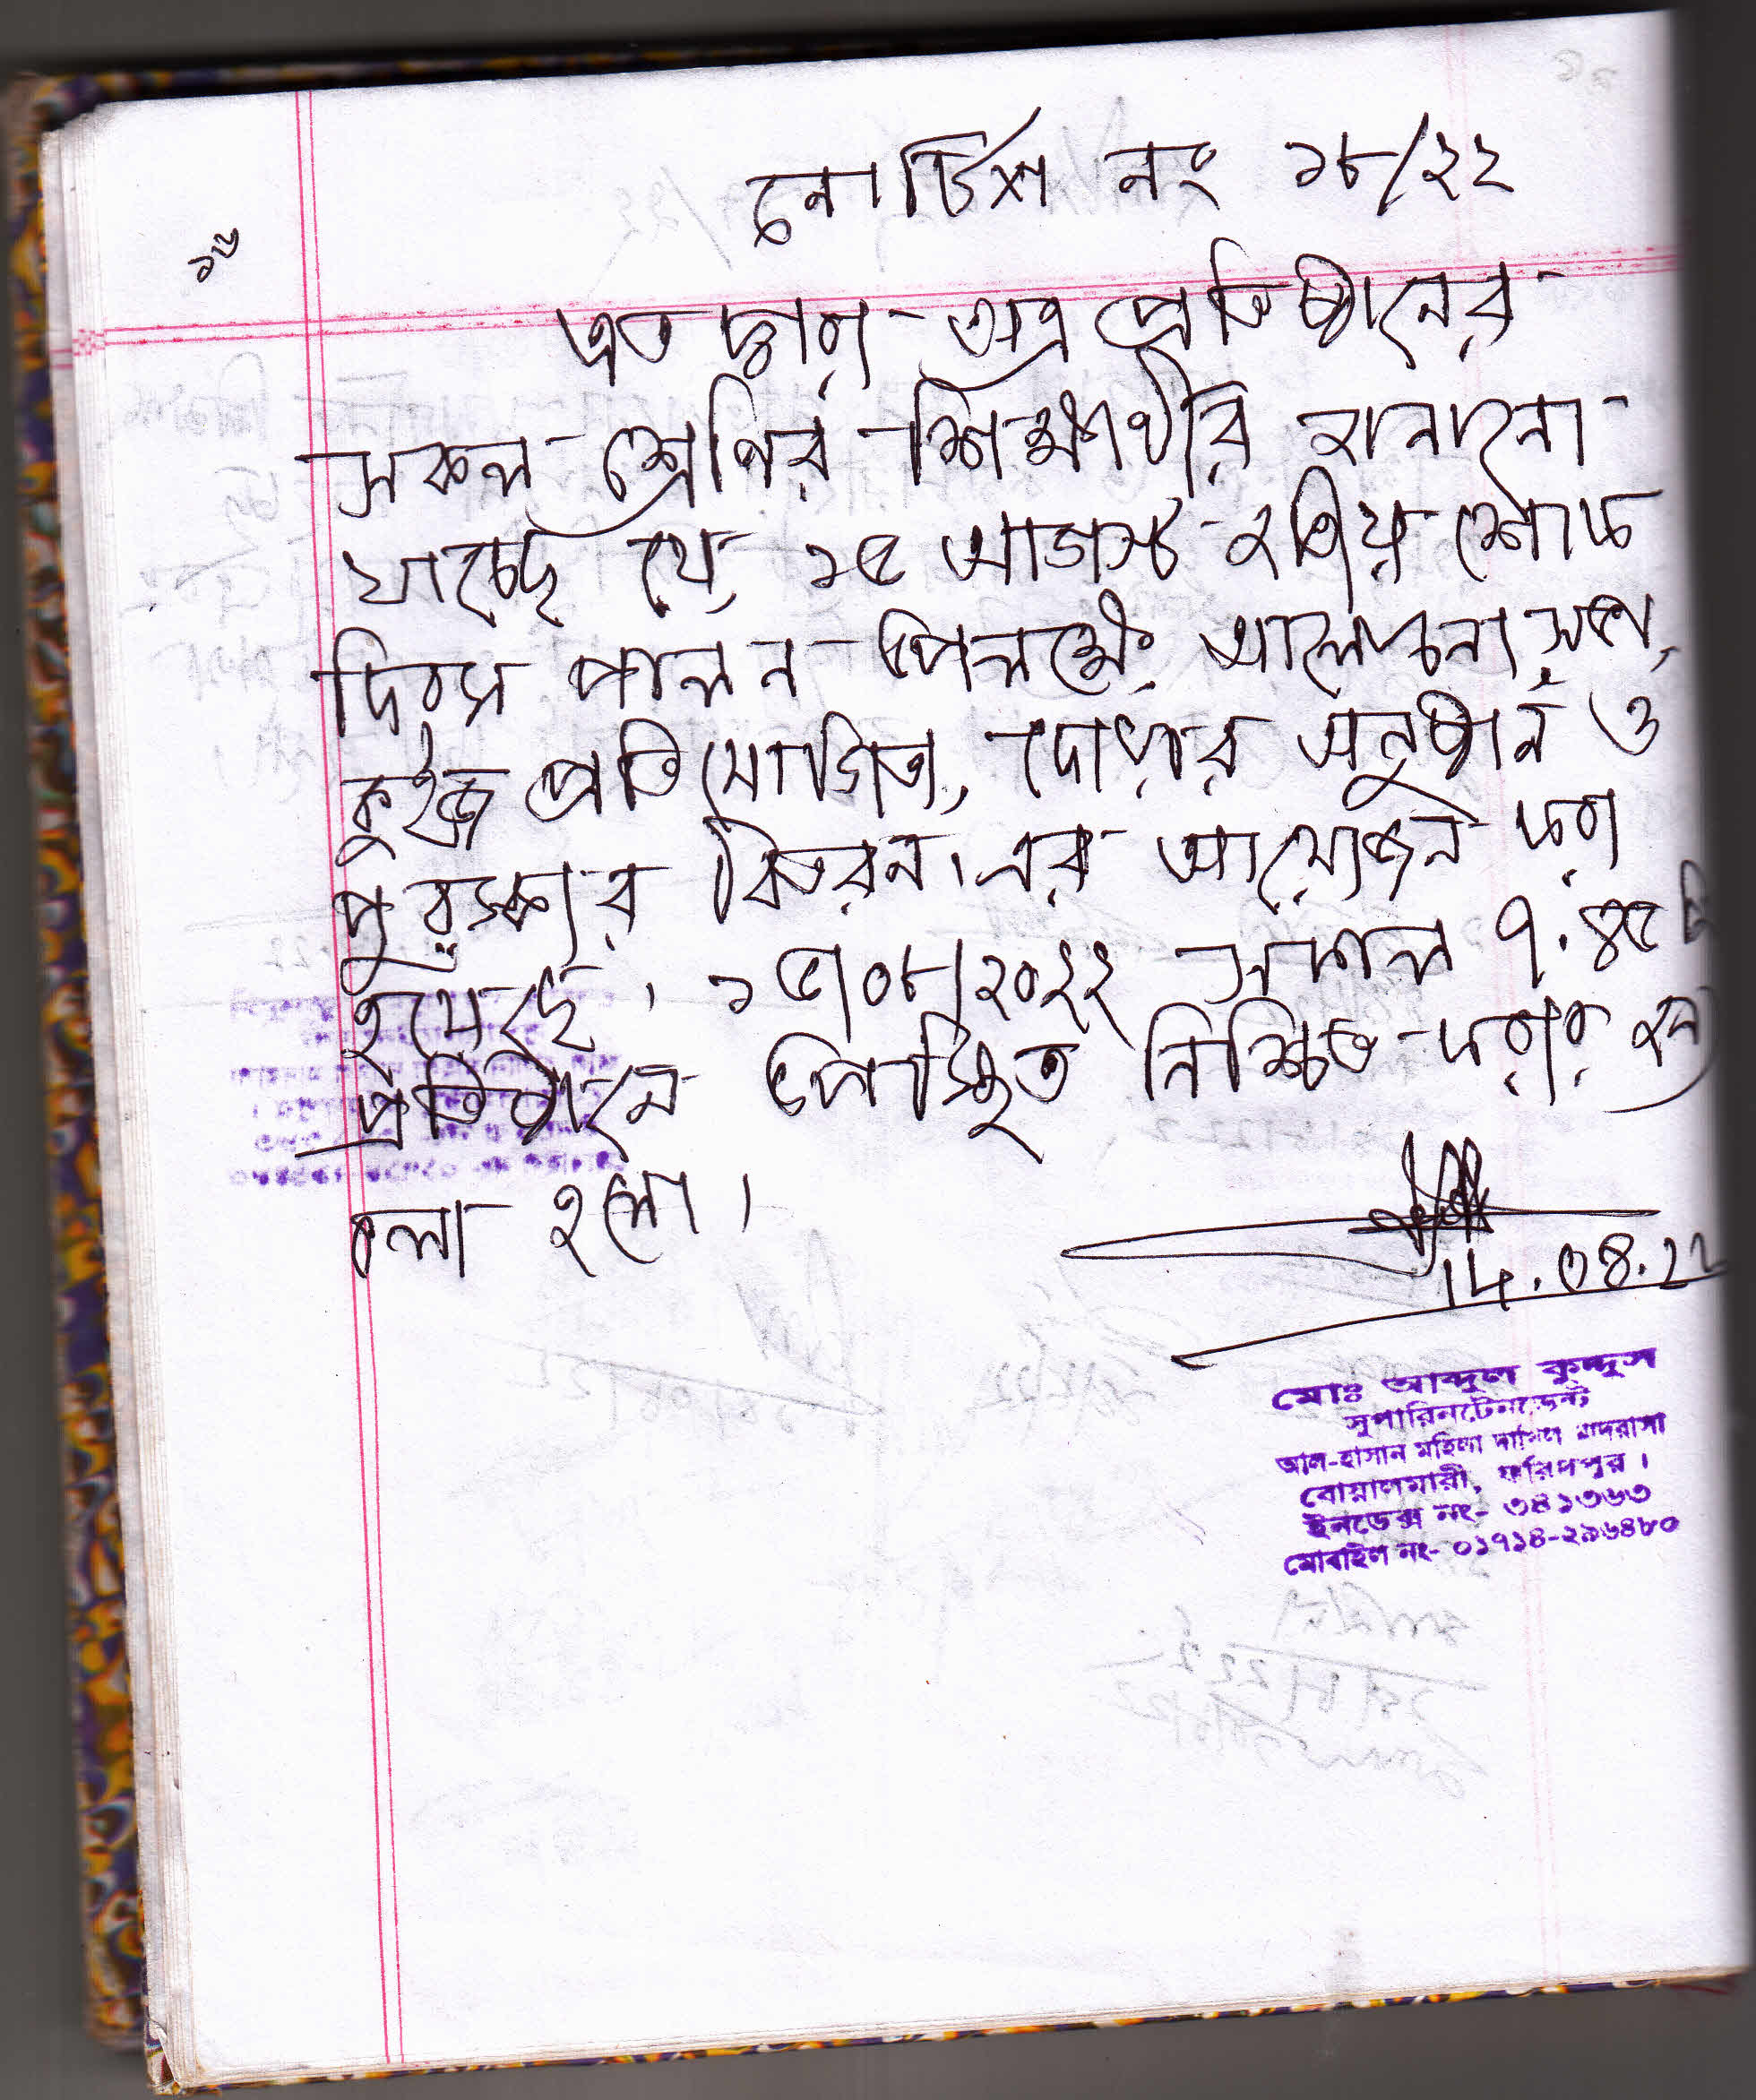 নোটিশ নং ১৮/২২
১৮
এতদ্বারা অত্র প্রতিষ্ঠানের
সকল শ্রেণির শিক্ষার্থীর জানানো
যাচ্ছে যে, ১৫ আগস্ট জাতীয় শোক
দিবস পালন উপলক্ষে আলোচনা সভা,
কুইজ প্রতিযোগিতা, দোয়ার অনুষ্ঠান ও
পুরস্কার বিতরন এর আয়োজন করা
হয়েছে। ১৫/০৮/২০২২ সকাল ৭.৪৫
প্রতিষ্ঠানে উপস্থিত নিশ্চিত করার জন্য
বলা হলো।
14.08.22
মোঃ আব্দুল কুদ্দুস
সুপারিনটেনডেন্ট
আল-হাসান মহিলা দাখিল মাদরাসা
বোয়ালমারী, ফরিদপুর।
ইনডেক্স নং- ৩৪১৩৬৩
মোবাইল নং- ০১৭১৪-২৯৬৪৮০